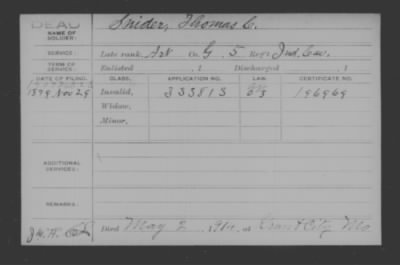 DEAD
NAME OF SOLDIER:
Snider, Thomas C.
SERVICE:
Late rank, Co. G, 5 Reg't Ind. Cav.
TERM OF SERVICE:
Enlisted , 1 Discharged , 1
DATE OF FILING. CLASS. APPLICATION NO. LAW. CERTIFICATE NO.
1879 Nov 29 Invalid, 333813 196969
Widow,
Minor,
ADDITIONAL SERVICES:
REMARKS:
Died May 2, 191 at Grant City Mo